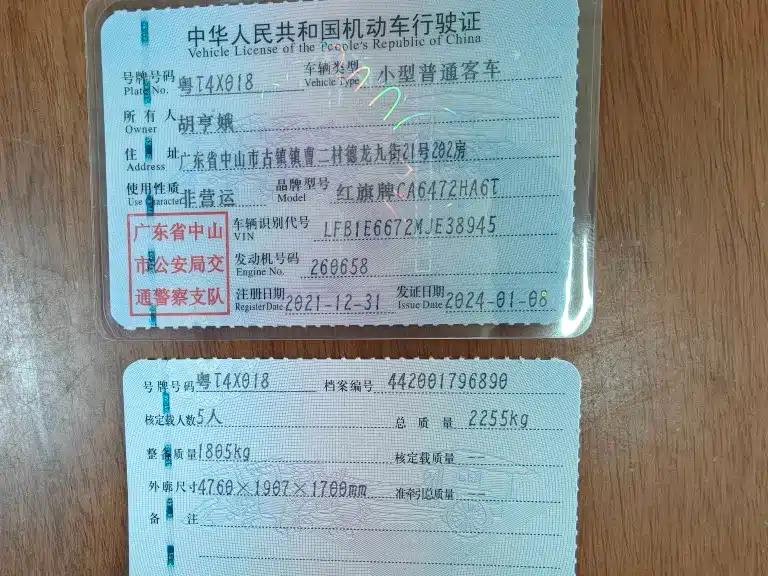 中华人民共和国机动车行驶证
Vehicle License of the People's Republic of China
号牌号码 粤T4X018 车辆类型 小型普通客车
Plate No. Vehicle Type
所有人 胡亨娥
Owner
住址 广东省中山市古镇镇曹二村德龙九街21号202房
Address
使用性质 非营运 品牌型号 红旗牌CA6472HA6T
Use Character Model
广东省中山
市公安局交
通警察支队
车辆识别代号 LFB1E6672MJE38945
VIN
发动机号码 260658
Engine No.
注册日期 2021-12-31 发证日期 2024-01-08
Register Date Issue Date
号牌号码 粤T4X018 档案编号 442001796890
核定载人数 5人 总质量 2255kg
整备质量 1805kg 核定载质量 --
外廓尺寸 4760×1907×1700mm 准牵引总质量 --
备注